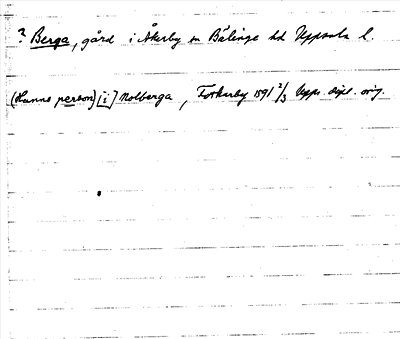 ? Berga, gård i Åkerby sn Bälinge hd Uppsala l.
(Hanns person) [i] Nolberga, Torkarby 1591 2/3 Upps. dipl. orig.